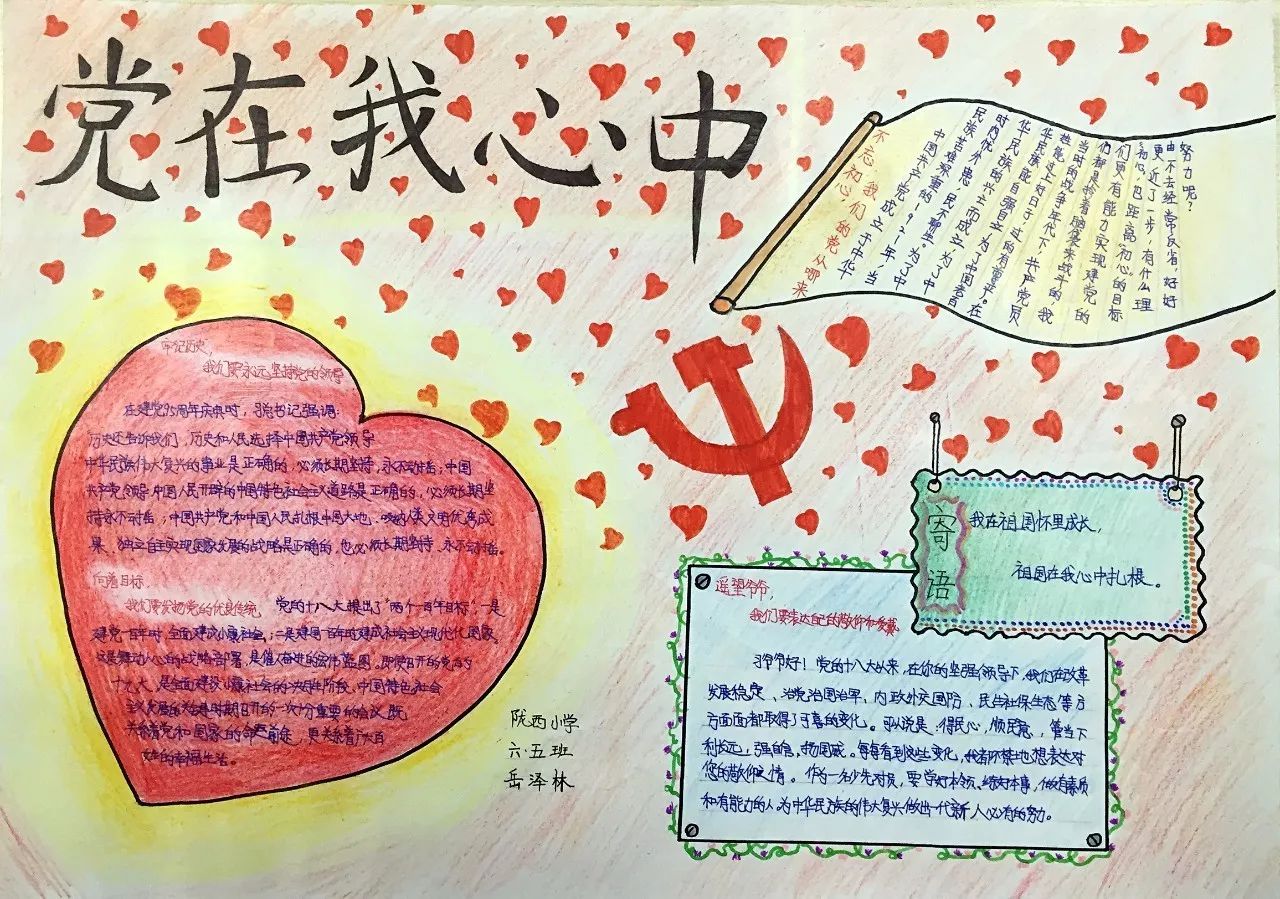 党在我心中
不忘初心，
我们的党从哪来
中国共产党1921年，当
民族苦难深重的
民不聊生。为了中
时内忧外患
华民族能自强自立
为了中国老百
当时的战争年代下，共产党员
们更有能力实现建党的
“初心”，也距离“初心”的目标
更近了一步，有什么理
由不去经常反省，好好
努力呢？
牢记历史，
我们要永远坚持党的领导
在建党95周年庆典时，习总书记强调：
历史还告诉我们，历史和人民选择中国共产党领导
中华民族伟大复兴的事业是正确的，必须长期坚持，永不动摇；中国
共产党领导中国人民开辟的中国特色社会主义道路是正确的，必须长期坚
持永不动摇；中国共产党和中国人民扎根中国大地、吸纳人类文明优秀成
果、独立自主实现国家发展的战略是正确的，也必须长期坚持、永不动摇。
向着目标，
我们要发扬党的优良传统。 党的十八大提出了“两个一百年目标”，一是
建党一百年时，全面建成小康社会；二是建国一百年时建成社会主义现代化国家，
这是舞动人心的战略部署，是催人奋进的宏伟蓝图。即使召开的党的
十九大，是全面建设小康社会的决胜阶段、中国特色社会
主义发展的关键时期召开的一次十分重要的会议，既
关系着党和国家的命运前途，更关系着广大百
姓的幸福生活。
陇西小学
六·五班
岳泽林
寄语
我在祖国怀里成长，
祖国在我心中扎根。
遥望爷爷，
我们要表达自己的敬仰和爱戴
习爷爷好！党的十八大以来，在你的坚强领导下，我们在改革
发展稳定、治党治国治军、内政外交国防、民生社保生态等方
方面面都取得了可喜的变化。可以说是：得民心，顺民意，管当下
利长远，强自信，扬国威。每每看到这些变化，我都不禁地想表达对
您的敬仰之情。作为一名少先对员，要学好本领、练好本事，做有素质
和有能力的人，为中华民族的伟大复兴做出一代新人必有的努力。